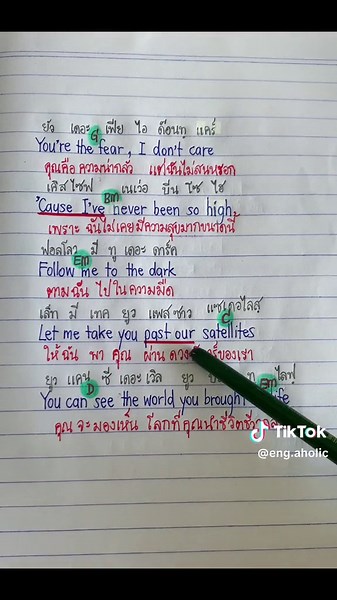 ยัว เดอะ เฟีย ไอ ด็อนทฺ แคร์
G
You're the fear, I don't care
คุณคือความน่ากลัว แต่ฉันไม่สนหรอก
เคิสไซฟ เนเว่อ บีน โซ ไฮ
Bm
'Cause I've never been so high
เพราะ ฉันไม่เคยมีความสุขมากขนาดนี้
ฟอลโลว มี ทู เดอะ ดาร์ค
Em
Follow me to the dark
ตามฉัน ไปในความมืด
เล็ท มี เทค ยูว แพสซาว แซเทอไลสฺ
C
Let me take you past our satellites
ให้ฉัน พา คุณ ผ่าน ของเรา
ยูว แคน ซี เดอะ เวิล ยูว ทู ไลฟฺ
D Em
You can see the world you brought life
คุณ จะมองเห็น โลกที่คุณนำชีวิต
TikTok
@eng.aholic